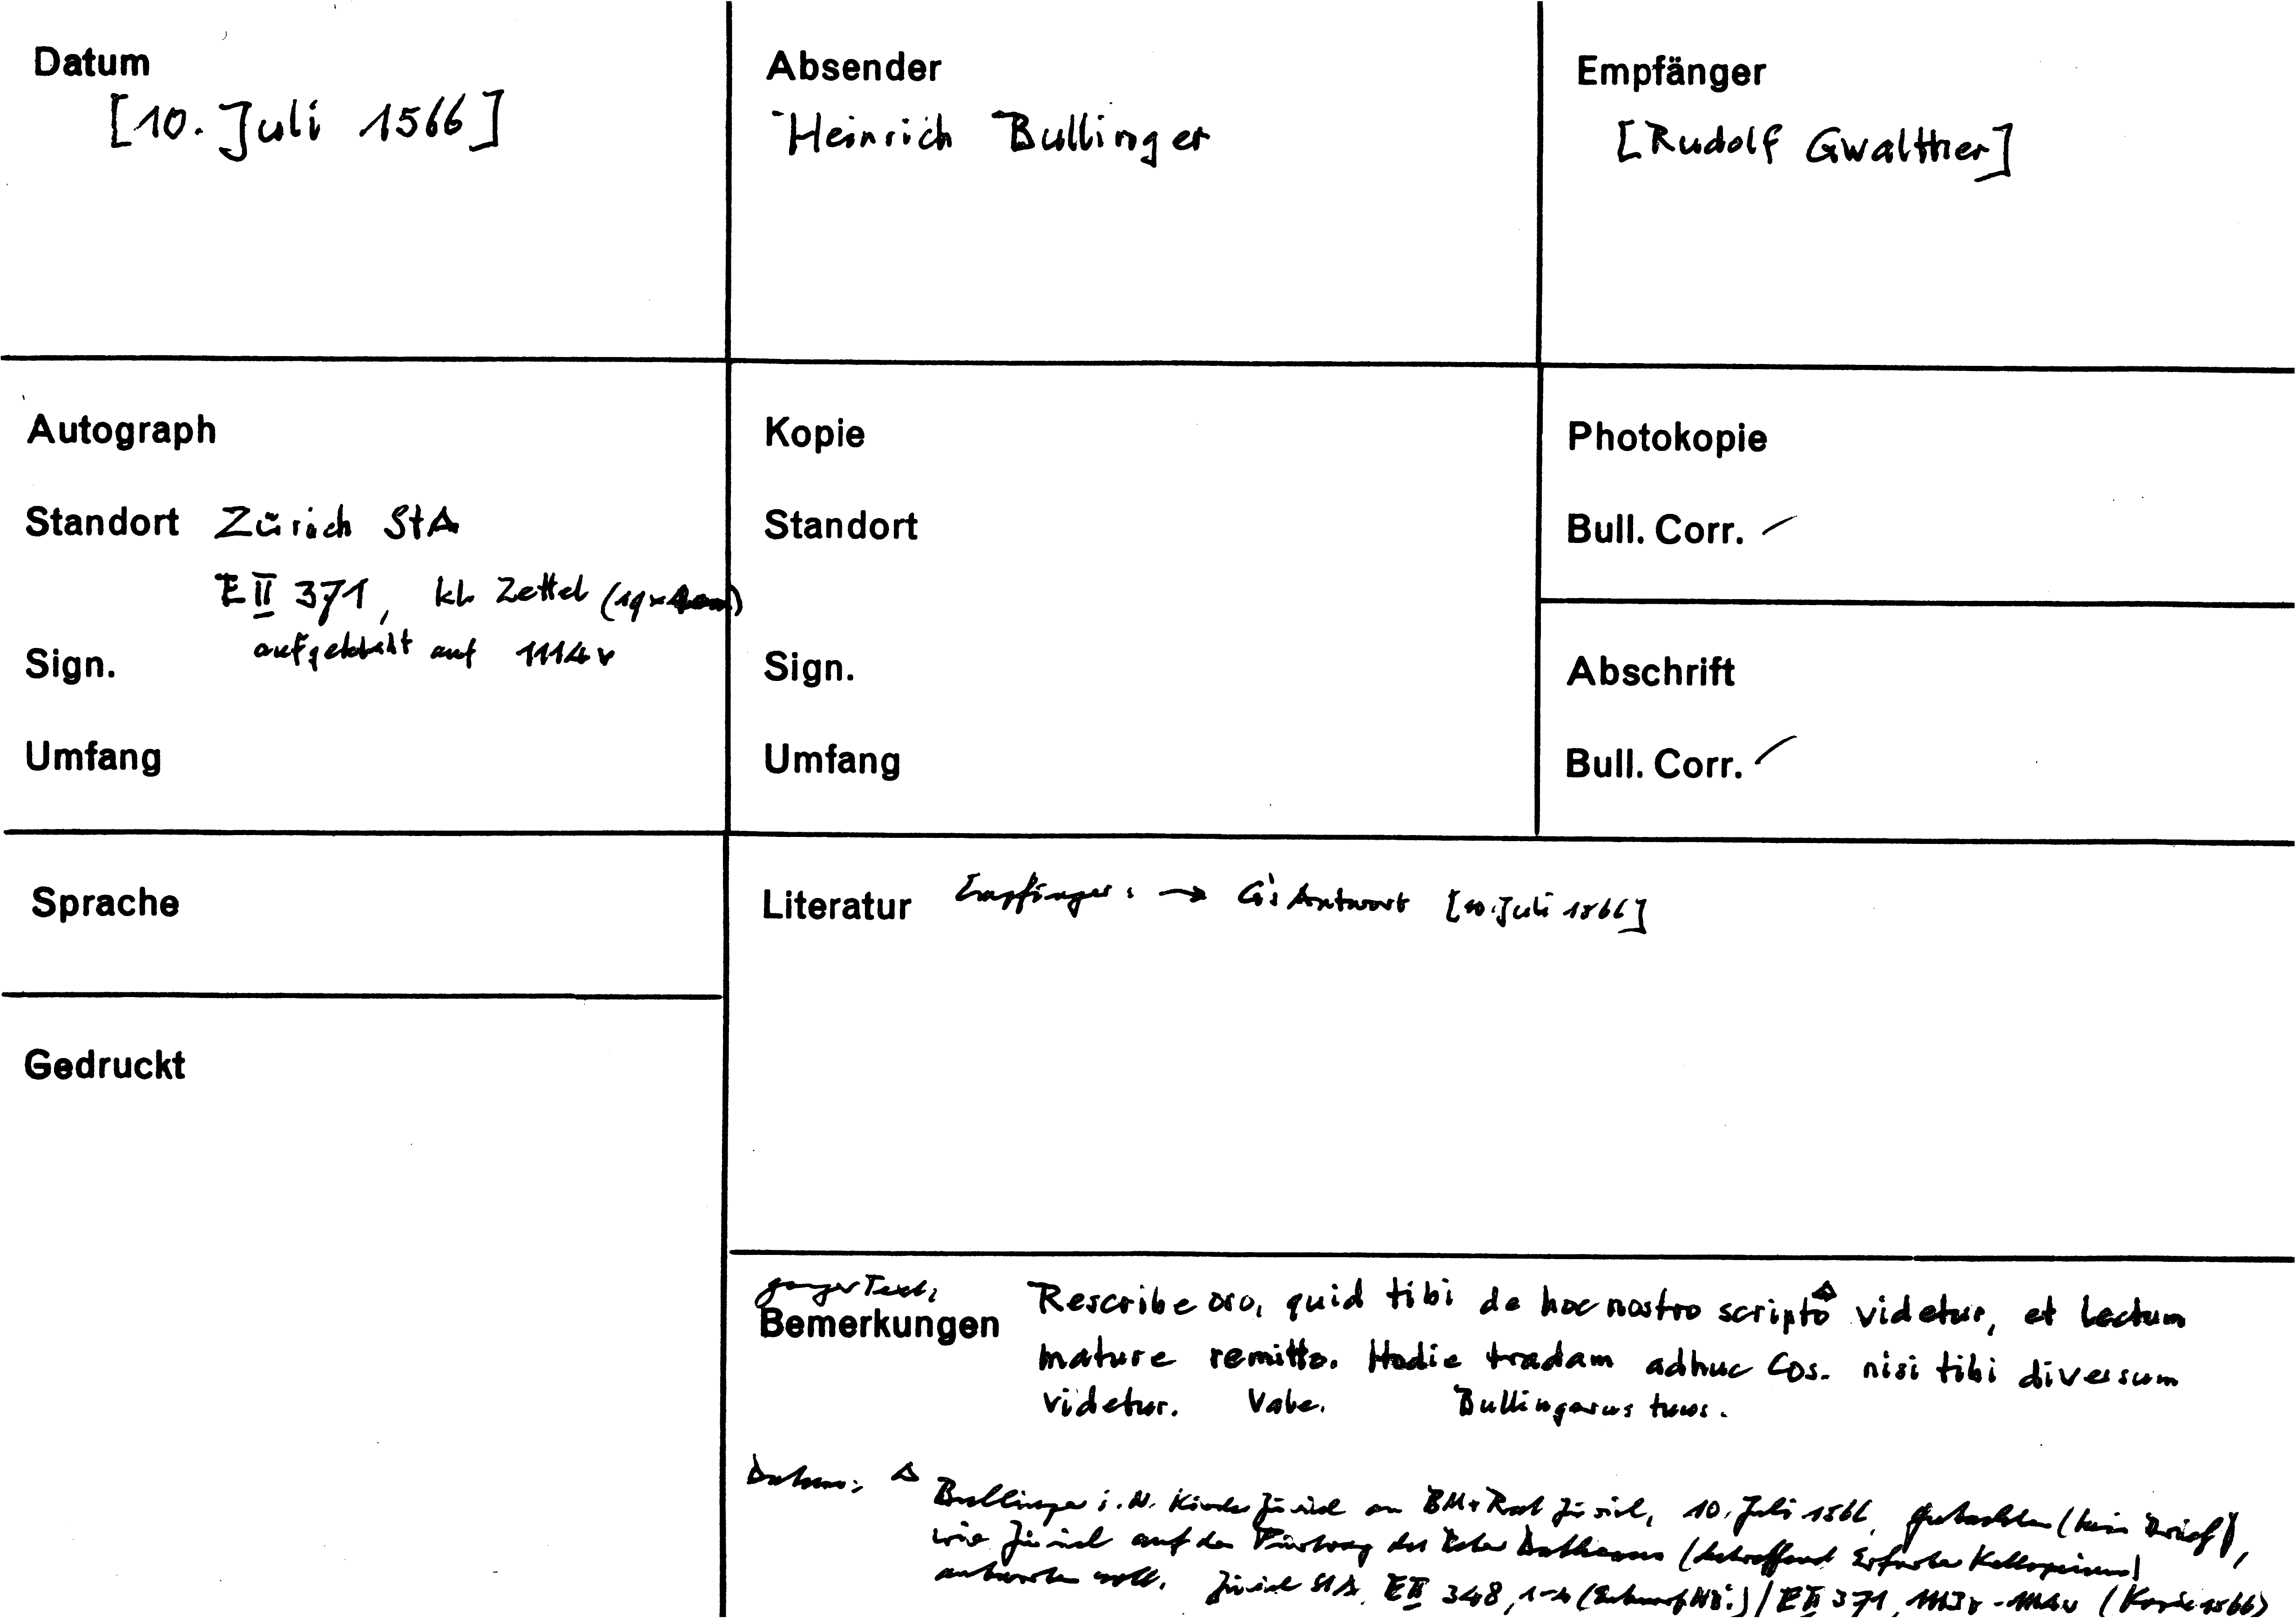 Datum
[10. Juli 1566]
Absender
Heinrich Bullinger
Empfänger
[Rudolf Gwalther]
Autograph
Standort Zürich StA
E II 371, kl. Zettel
Sign. aufgeklebt auf 1114v
Umfang
Kopie
Standort
Sign.
Umfang
Photokopie
Bull. Corr. –
Abschrift
Bull. Corr. –
Sprache
Gedruckt
Literatur Empfänger: → G's Antwort [10. Juli 1566]
ganzer Text:
Bemerkungen Rescribe oro, quid tibi de hoc nostro scripto △ videtur, et lectum
mature remitto. Hodie tradam adhuc Cos. nisi tibi diversum
videtur. Vale. Bullingerus tuus.
Datum: △ Bullinger i. N. Kirche Zürich an BM + Rat Zürich, 10. Juli 1566, Gutachten (kein Brief),
wie Zürich auf den Fürtrag des Dathenus (betreffend Erfurter
antworten soll. Zürich StA, E II 348, (Entwurf HB:) / E II 371, 1113r - 1114v (Kopie 1566)